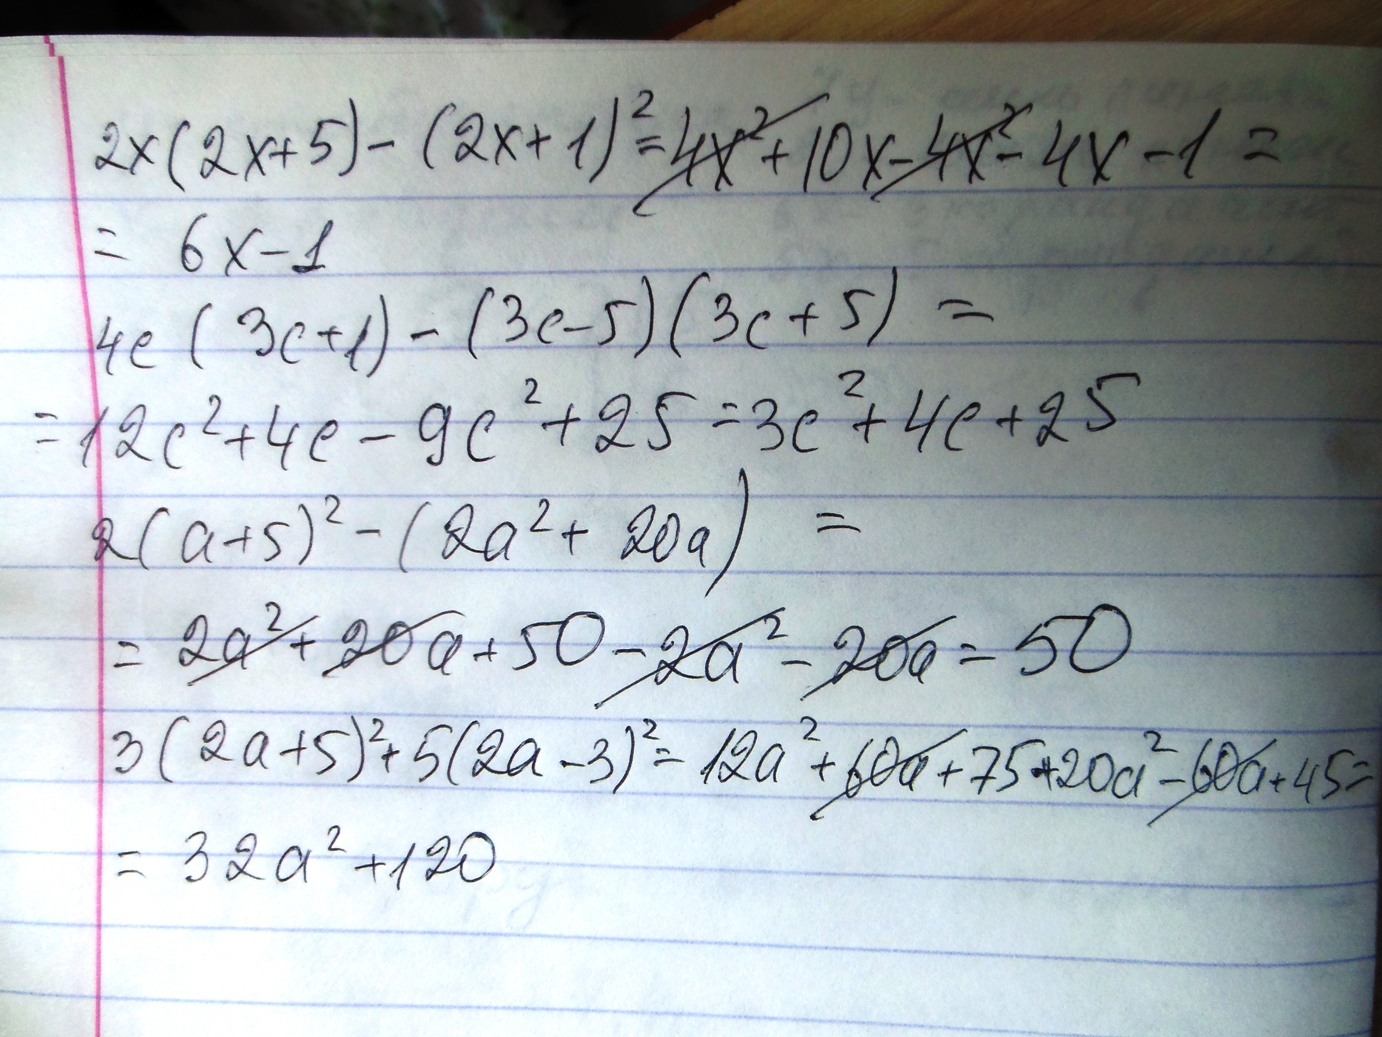 2x(2x+5)-(2x+1)²=4x²+10x-4x²-4x-1=
= 6x-1
4c(3c+1)-(3c-5)(3c+5)=
=12c²+4c-9c²+25=3c²+4c+25
2(a+5)²-(2a²+20a)=
=2a²+20a+50-2a²-20a=50
3(2a+5)²+5(2a-3)²=12a²+60a+75+20a²-60a+45=
=32a²+120